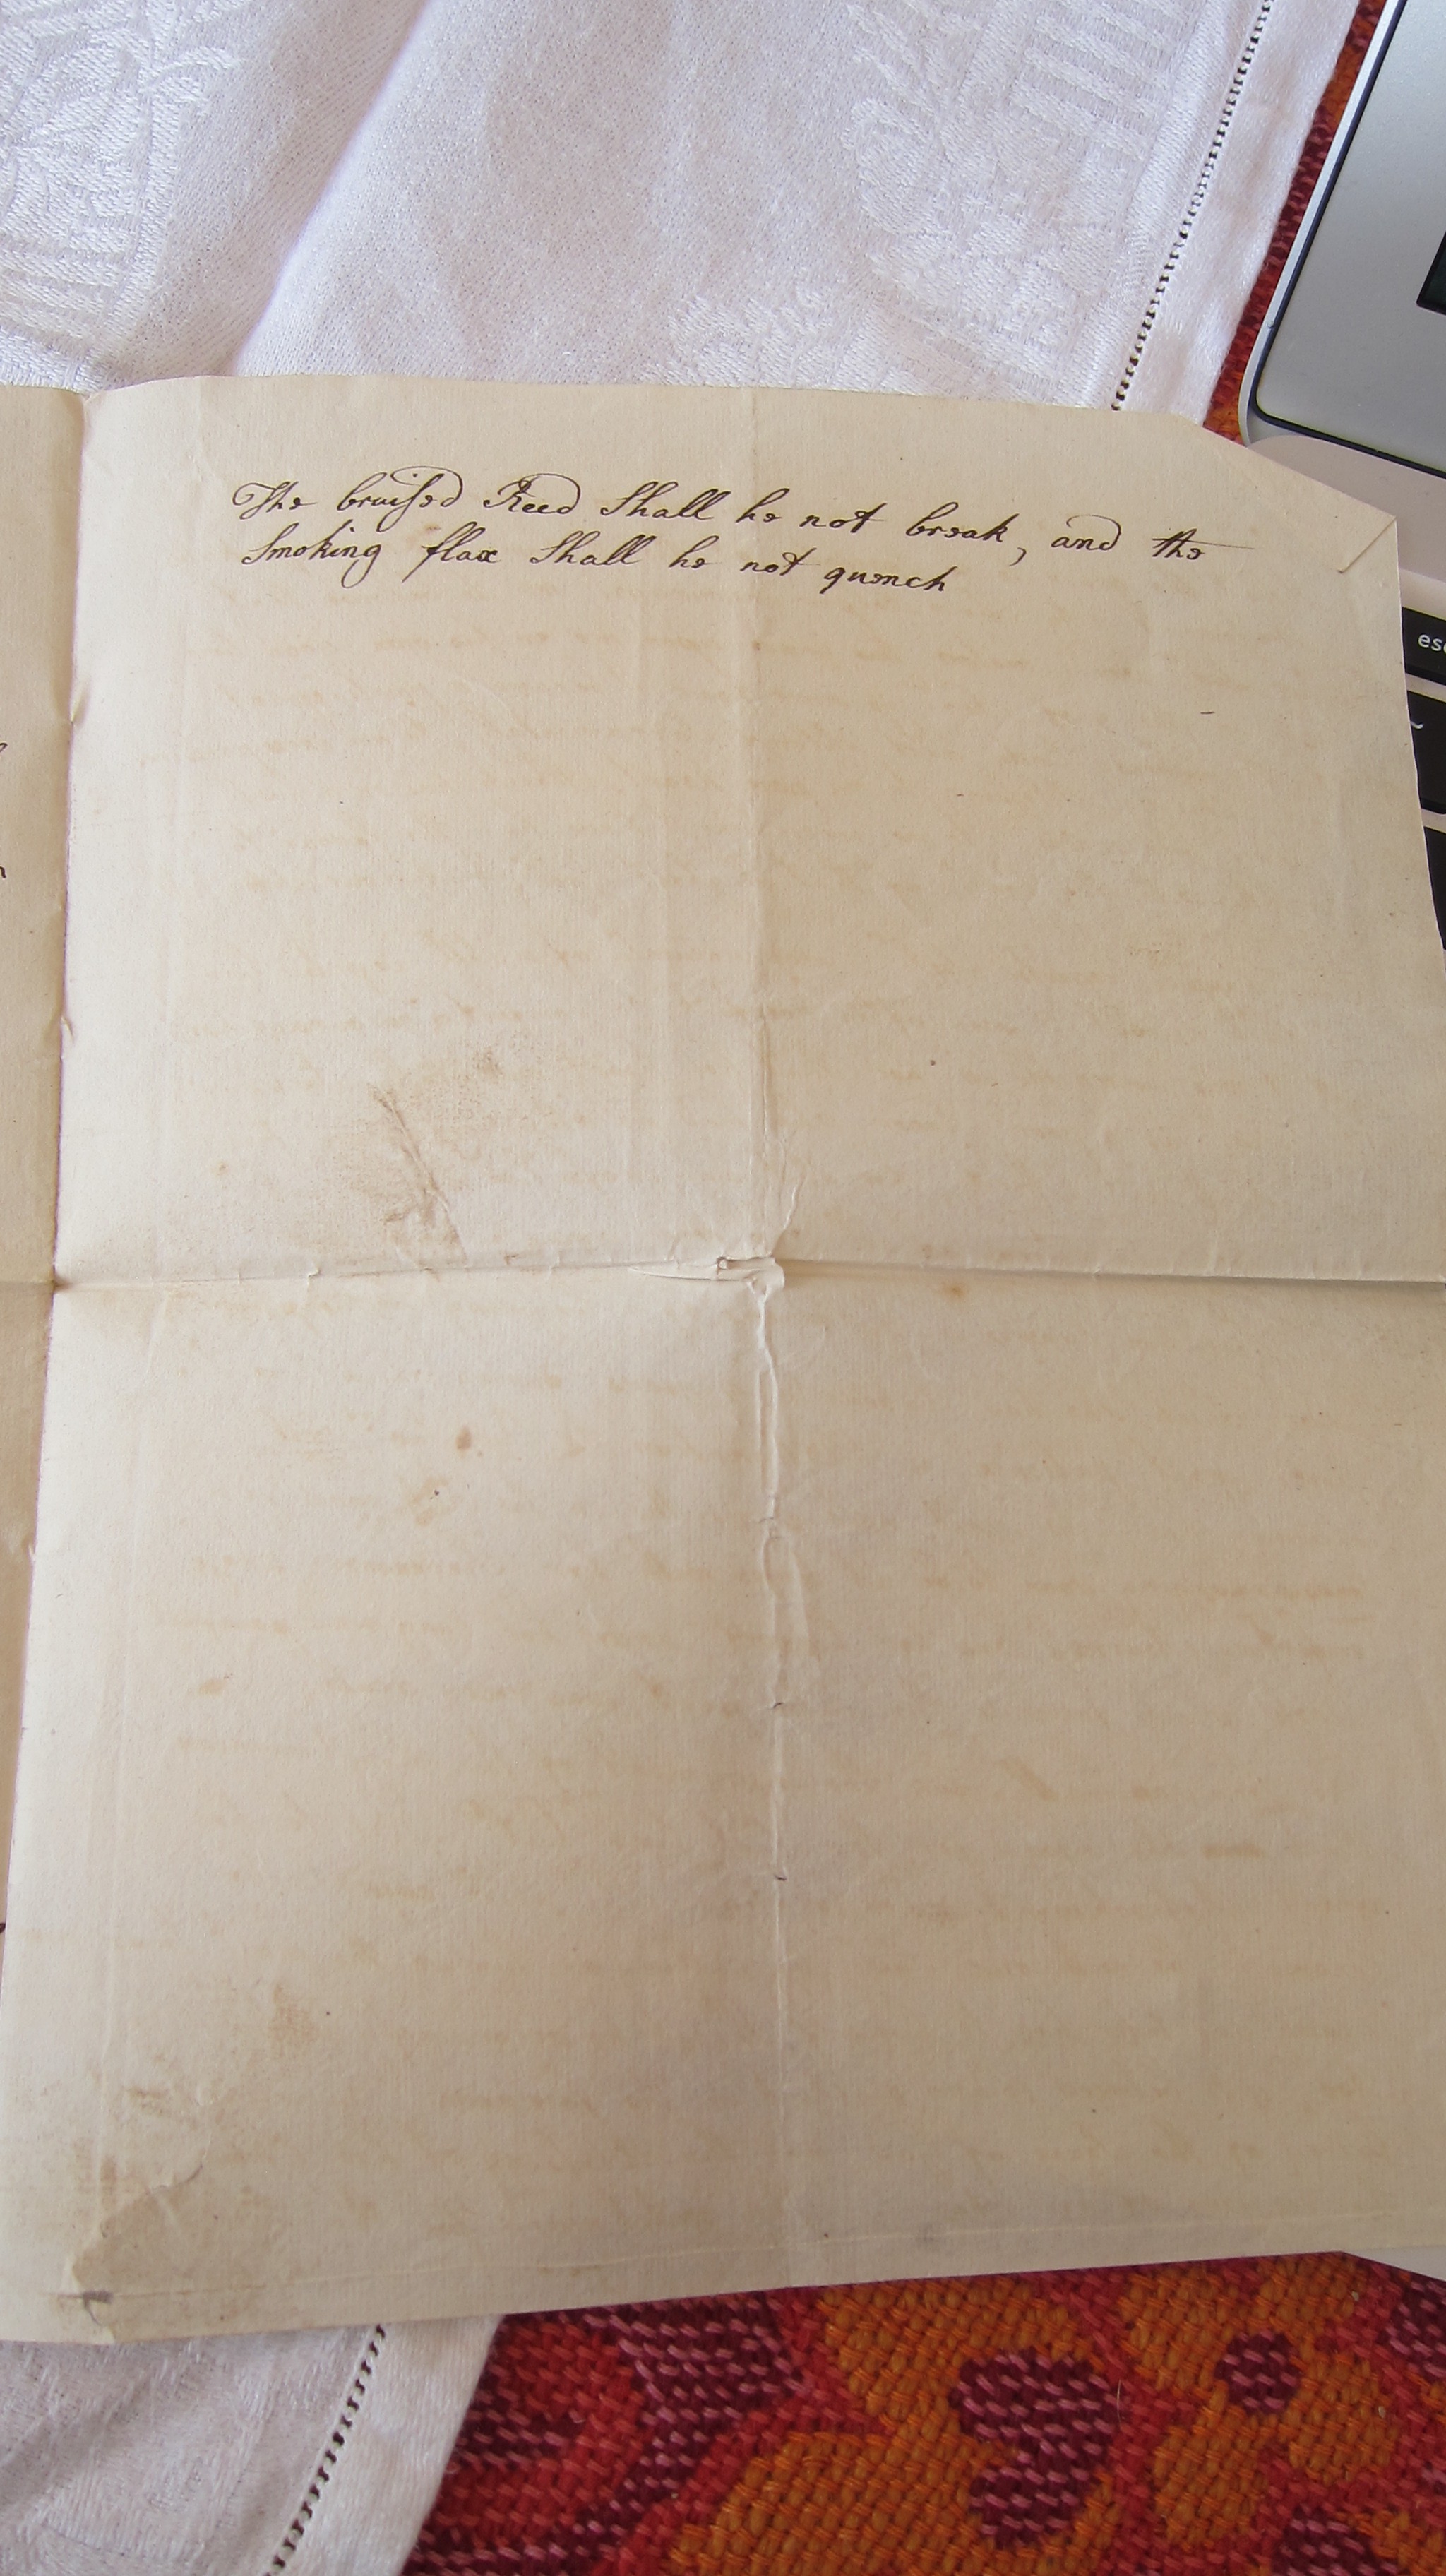 The bruised Reed Shall he not break, and the
Smoking flax Shall he not quench
esc